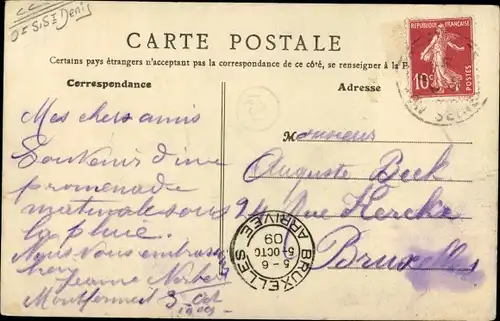 Dt S/St Denis
CARTE POSTALE
Certains pays étrangers n'acceptant pas la correspondance de ce côté, se renseigner à la P
Correspondance
Adresse
RÉPUBLIQUE FRANÇAISE
10c
POSTES
Mes chers amis
Souvenir d'une
promenade
matinale sous
la pluie.
Nous vous embrassons
Jeanne Norbert
Montfermeil 3 Oct
1909
Monsieur
Auguste Beck
24 Rue
Bruxelles
BRUXELLES
5-6
5 OCTO
09
ARRIVEE